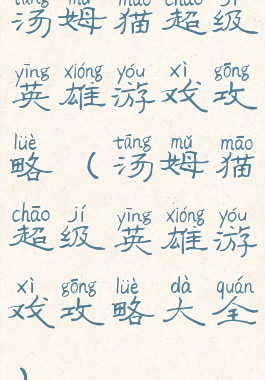 tāng mǔ māo chāo jí
汤姆猫超级
yīng xióng yóu xì gōng
英雄游戏攻
lüè tāng mǔ māo
略（汤姆猫
chāo jí yīng xióng yóu
超级英雄游
xì gōng lüè dà quán
戏攻略大全
）